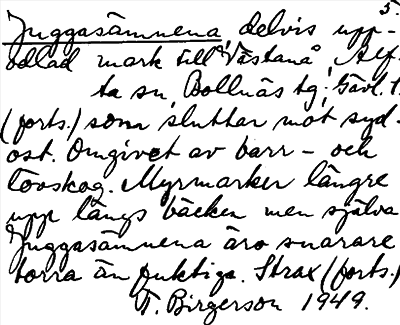 5.
Juggasämnena, delvis upp-
odlad mark till Västanå, Alf-
ta sn, Bollnäs tg, Gävl. l.
(forts.) som sluttar mot syd-
ost. Omgivet av barr- och
lövskog. Myrmarker längre
upp längs bäcken men själva
Juggasämnena äro snarare
torra än fuktiga. Strax (forts.)
T. Birgerson 1949.